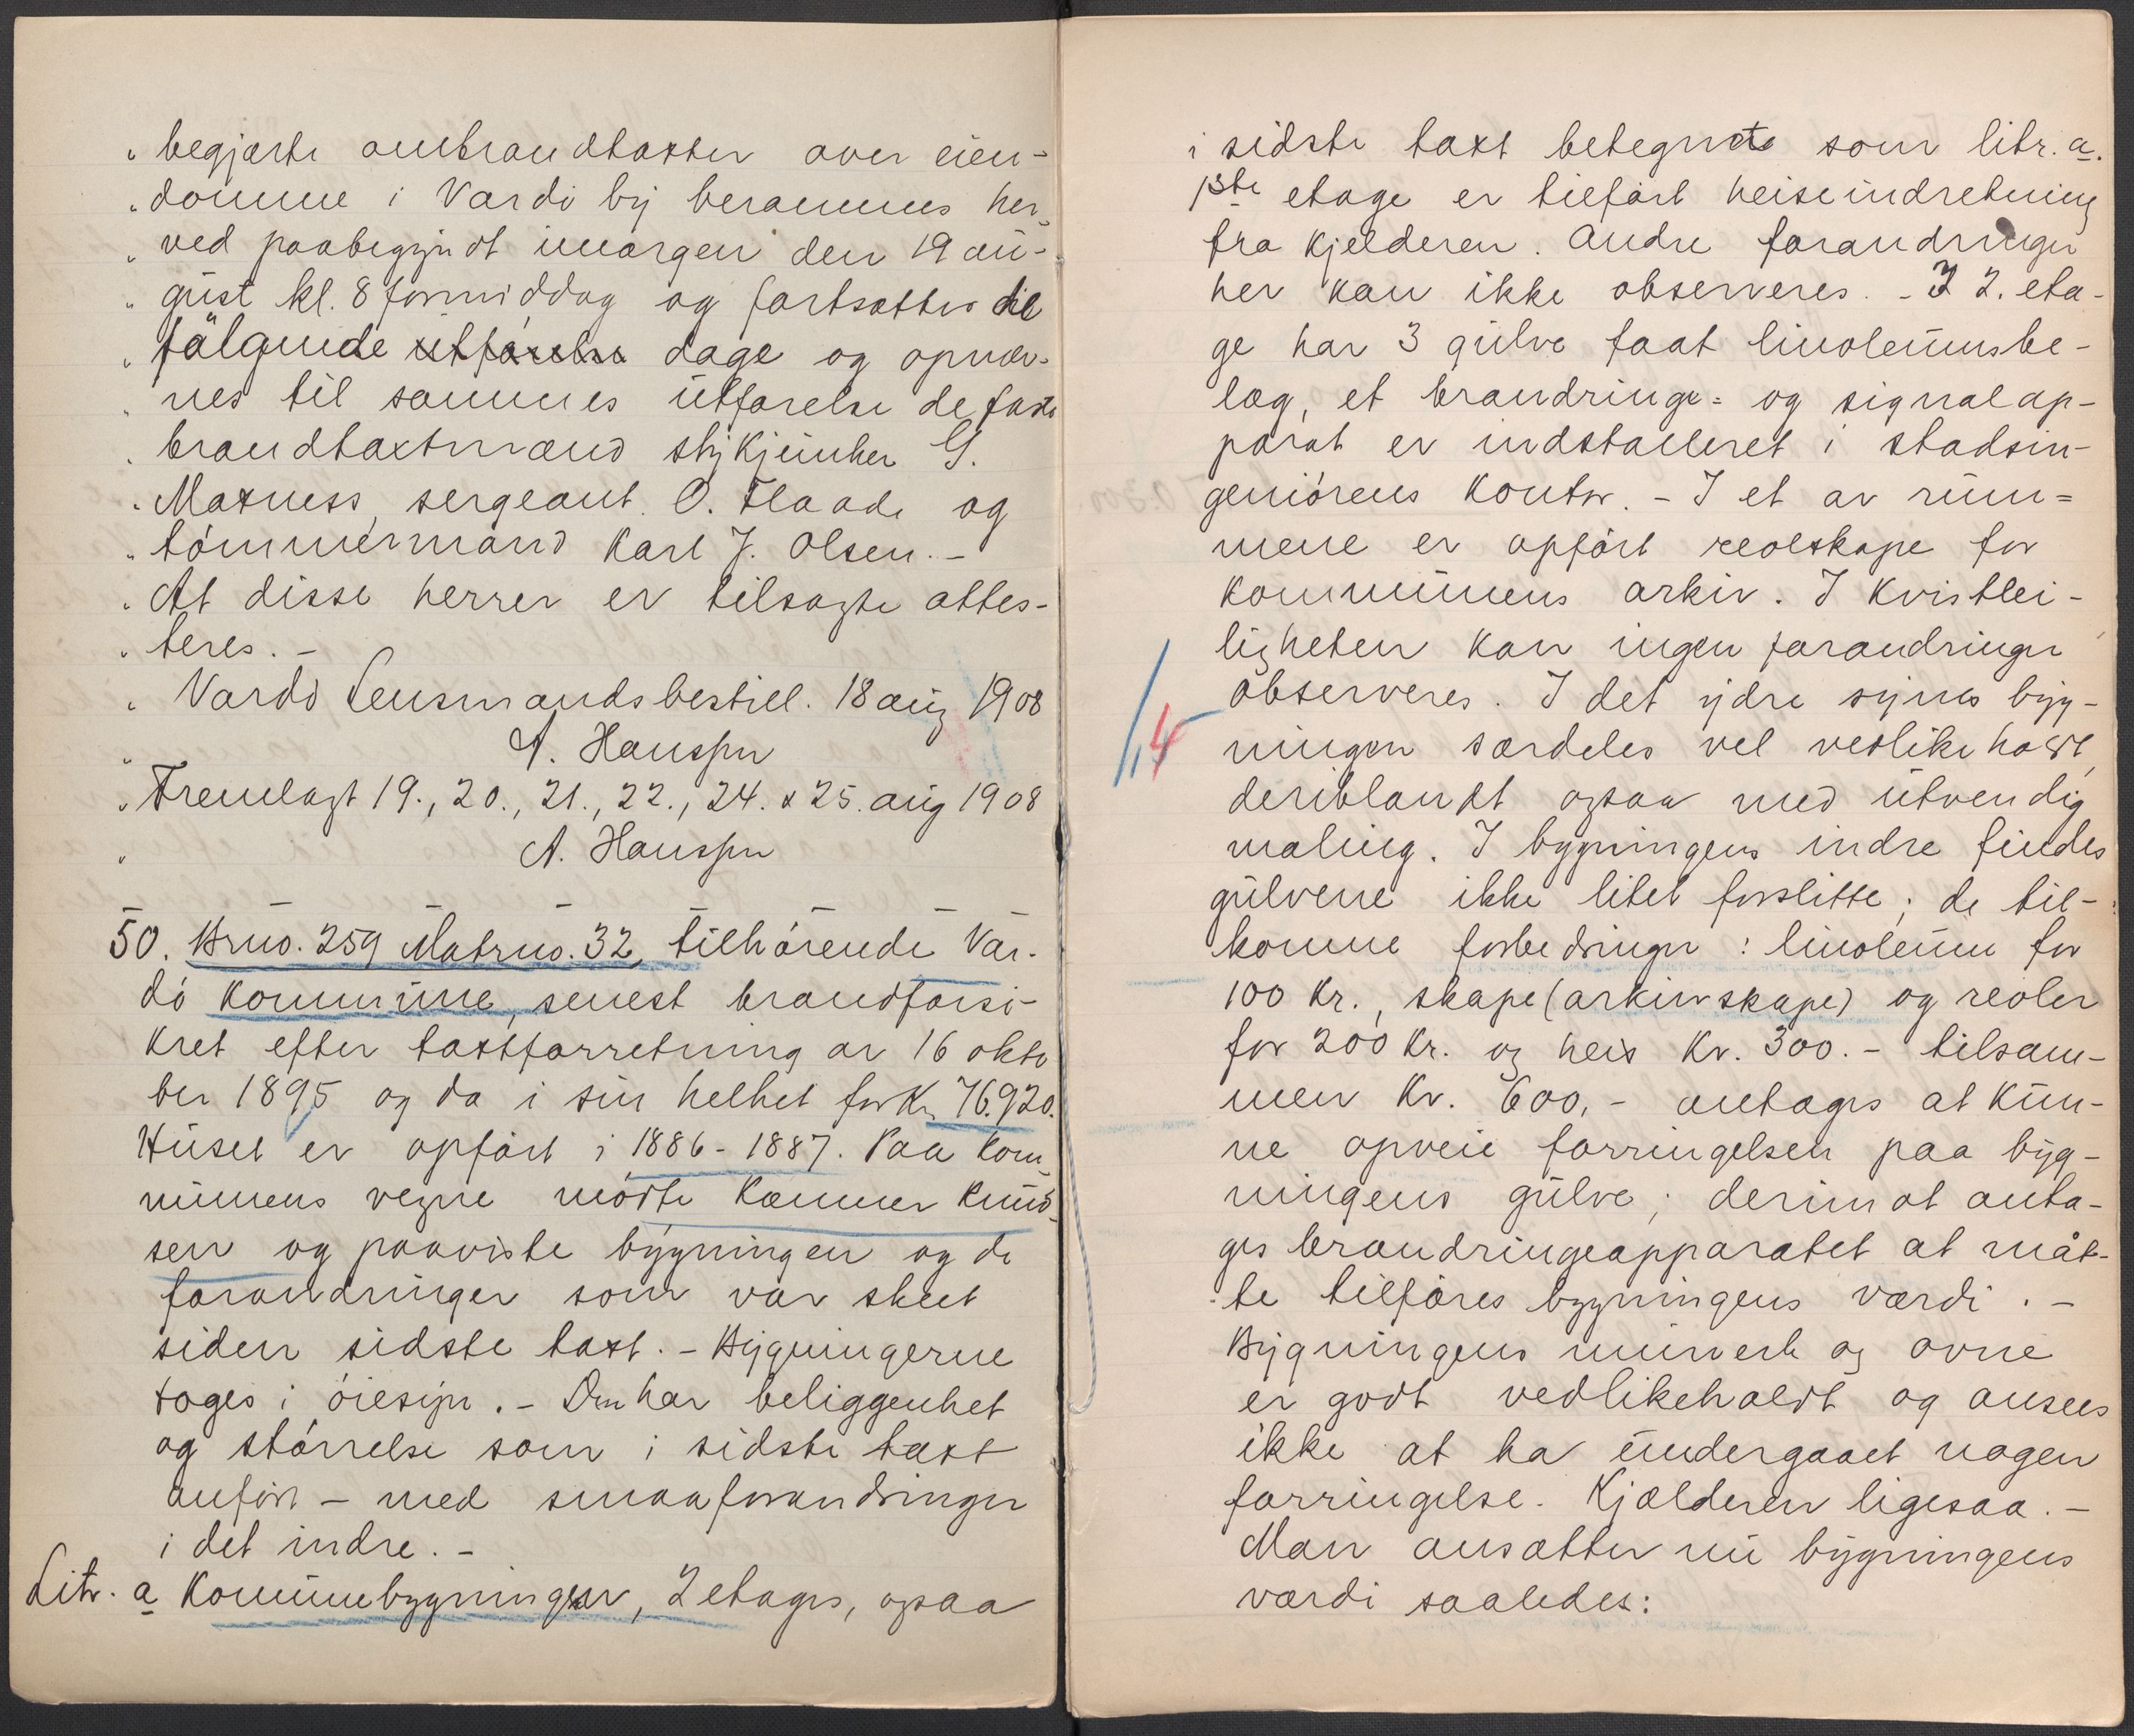 „ begjærte ombrandtaxter over eien-
„ domme i Vardö by berammes her-
„ ved paabegyndt imorgen den 19 au-
„ gust kl. 8 formiddag og fortsættes
„ fölgende utförelse dage og opnæv-
„ nes til sammes utförelse de faste
„ brandtaxtmænd stykjunker G.
„ Maxness, sergeant O. Flaade og
„ tömmermand Karl J. Olsen. -
„ At disse herrer er tilsagte attes-
„ teres. -
„ Vardö Lensmandsbestill. 18 aug 1908
„ A. Hanssen
„ Fremlagt 19., 20., 21., 22., 24. & 25. aug 1908
„ A. Hanssen
50. Brno. 259 Matrno. 32, tilhörende Var-
dö kommune, senest brandforsi-
kret efter taxtforretning av 16 okto
ber 1895 og da i sin helhet for Kr. 76.920.
Huset er opfört i 1886-1887. Paa kom-
munens vegne mödte Kæmner Knud-
sen og paaviste bygningen og de
forandringer som var skeet
siden sidste taxt. - Bygningerne
toges i öiesyn. - Den har beliggenhet
og störrelse som i sidste taxt
anfört - med smaaforandringer
i det indre. -
Litr. a Kommunebygningen, 2 etages, ogsaa
i sidste taxt betegnete som litr. a.
1ste etage er tilfört heiseindretning
fra kjelderen. Andre forandringer
her kan ikke observeres. - I 2. eta-
ge har 3 gulve faat linoleumsbe-
læg, et brandringe- og signalap-
parat er indstalleret i stadsin-
geniörens kontor. - I et av rum-
mene er opfört reolskape for
kommunens arkiv. I kvistlei-
ligheten kan ingen forandringer
observeres. I det ydre synes byg-
ningen særdeles vel vedlikeholdt,
deriblandt ogsaa med utvendig
maling. I bygningens indre findes
gulvene ikke litet forslitte; de til-
komne forbedringer: linoleum for
100 Kr., skape (arkivskape) og reoler
for 200 Kr. og heis Kr. 300.- tilsam-
men Kr. 600,- antages at kun-
ne opveie forringelsen paa byg-
ningens gulve; derimot anta-
ges brandringeapparatet at måt-
te tilföres bygningens værdi. -
Bygningens murverk og ovne
er godt vedlikeholdt og ansees
ikke at ha undergaaet nogen
forringelse. Kjælderen ligesaa. -
Man ansætter nu bygningens
værdi saaledes: